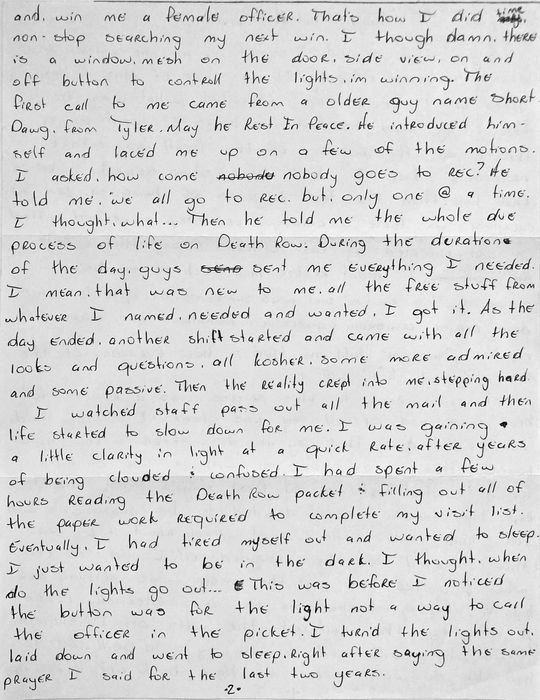 and. win me a female officer. That's how I did time
non-stop searching my next win. I though damn. there
is a window. mesh on the door. side view. on and
off button to controll the lights. im winning. The
first call to me came from a older guy name Short
Dawg. from Tyler. May he Rest In Peace. He introduced him-
self and laced me up on a few of the motions.
I asked. how come nobody nobody goes to REC? He
told me. we all go to REC. but. only one @ a time.
I thought. what... Then he told me the whole due
process of life on Death Row. During the duration
of the day. guys send sent me everything I needed.
I mean. that was new to me. all the free stuff from
whatever I named. needed and wanted. I got it. As the
day ended. another shift started and came with all the
looks and questions. all kosher. some more admired
and some passive. Then the reality crept into me. stepping hard.
I watched staff pass out all the mail and then
life started to slow down for me. I was gaining
a little clarity in light at a quick rate. after years
of being clouded & confused. I had spent a few
hours reading the Death Row packet & filling out all of
the paper work required to complete my visit list.
Eventually. I had tired myself out and wanted to sleep.
I just wanted to be in the dark. I thought. when
do the lights go out... This was before I noticed
the button was for the light not a way to call
the officer in the picket. I turn'd the lights out.
laid down and went to sleep. Right after saying the same
prayer I said for the last two years.
.2.